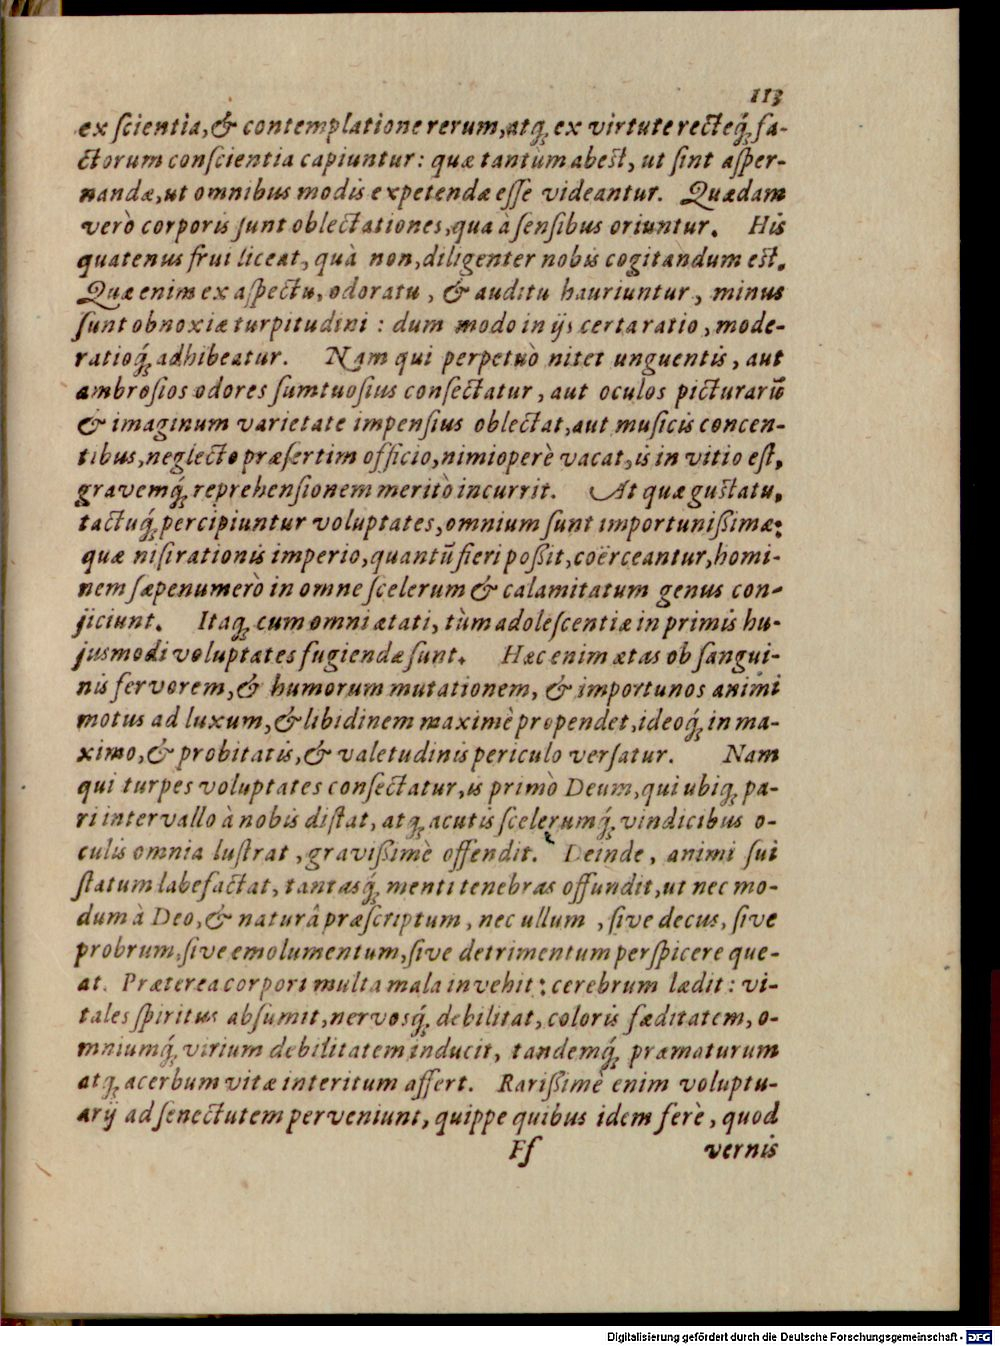 113
ex ſcientia, & contemplatione rerum, atq́; ex virtute recteq́; fa-
ctorum conſcientia capiuntur: quæ tantùm abest, ut ſint aſper-
nandæ, ut omnibus modis expetendæ eſſe videantur. Quædam
verò corporis ſunt oblectationes, qua à ſenſibus oriuntur. His
quatenus frui liceat, quà non, diligenter nobis cogitandum est.
Quæ enim ex aſpectu, odoratu, & auditu hauriuntur, minus
ſunt obnoxiæ turpitudini: dum modo in ijs certa ratio, mode-
ratioq́; adhibeatur. Nam qui perpetuò nitet unguentis, aut
ambroſios odores ſumtuoſius conſectatur, aut oculos picturarū
& imaginum varietate impenſius oblectat, aut muſicis concen-
tibus, neglecto præſertim officio, nimioperè vacat, is in vitio eſt,
gravemq́; reprehenſionem meritò incurrit. At quæ gustatu,
tactuq́; percipiuntur voluptates, omnium ſunt importunißimæ:
quæ niſi rationis imperio, quantū fieri poßit, coërceantur, homi-
nem ſæpenumerò in omne ſcelerum & calamitatum genus con-
jiciunt. Itaq; cum omni ætati, tùm adoleſcentiæ in primis hu-
jusmodi voluptates fugiendæ ſunt. Hæc enim ætas ob ſangui-
nis fervorem, & humorum mutationem, & importunos animi
motus ad luxum, & libidinem maximè propendet, ideoq́; in ma-
ximo, & probitatis, & valetudinis periculo verſatur. Nam
qui turpes voluptates conſectatur, is primò Deum, qui ubiq; pa-
ri intervallo à nobis diſtat, atq; acutis ſcelerumq́; vindicibus o-
culis omnia luſtrat, gravißimè offendit. Deinde, animi ſui
ſtatum labefactat, tantasq́; menti tenebras offundit, ut nec mo-
dum à Deo, & naturâ præſcriptum, nec ullum, ſive decus, ſive
probrum, ſive emolumentum, ſive detrimentum perſpicere que-
at. Præterea corpori multa mala invehit: cerebrum lædit: vi-
tales ſpiritus abſumit, nervosq́; debilitat, coloris fæditatem, o-
mniumq́; virium debilitatem inducit, tandemq́; præmaturum
atq; acerbum vitæ interitum affert. Rarißimè enim voluptu-
arij ad ſenectutem perveniunt, quippe quibus idem ferè, quod
Ff vernis
Digitalisierung gefördert durch die Deutsche Forschungsgemeinschaft - DFG